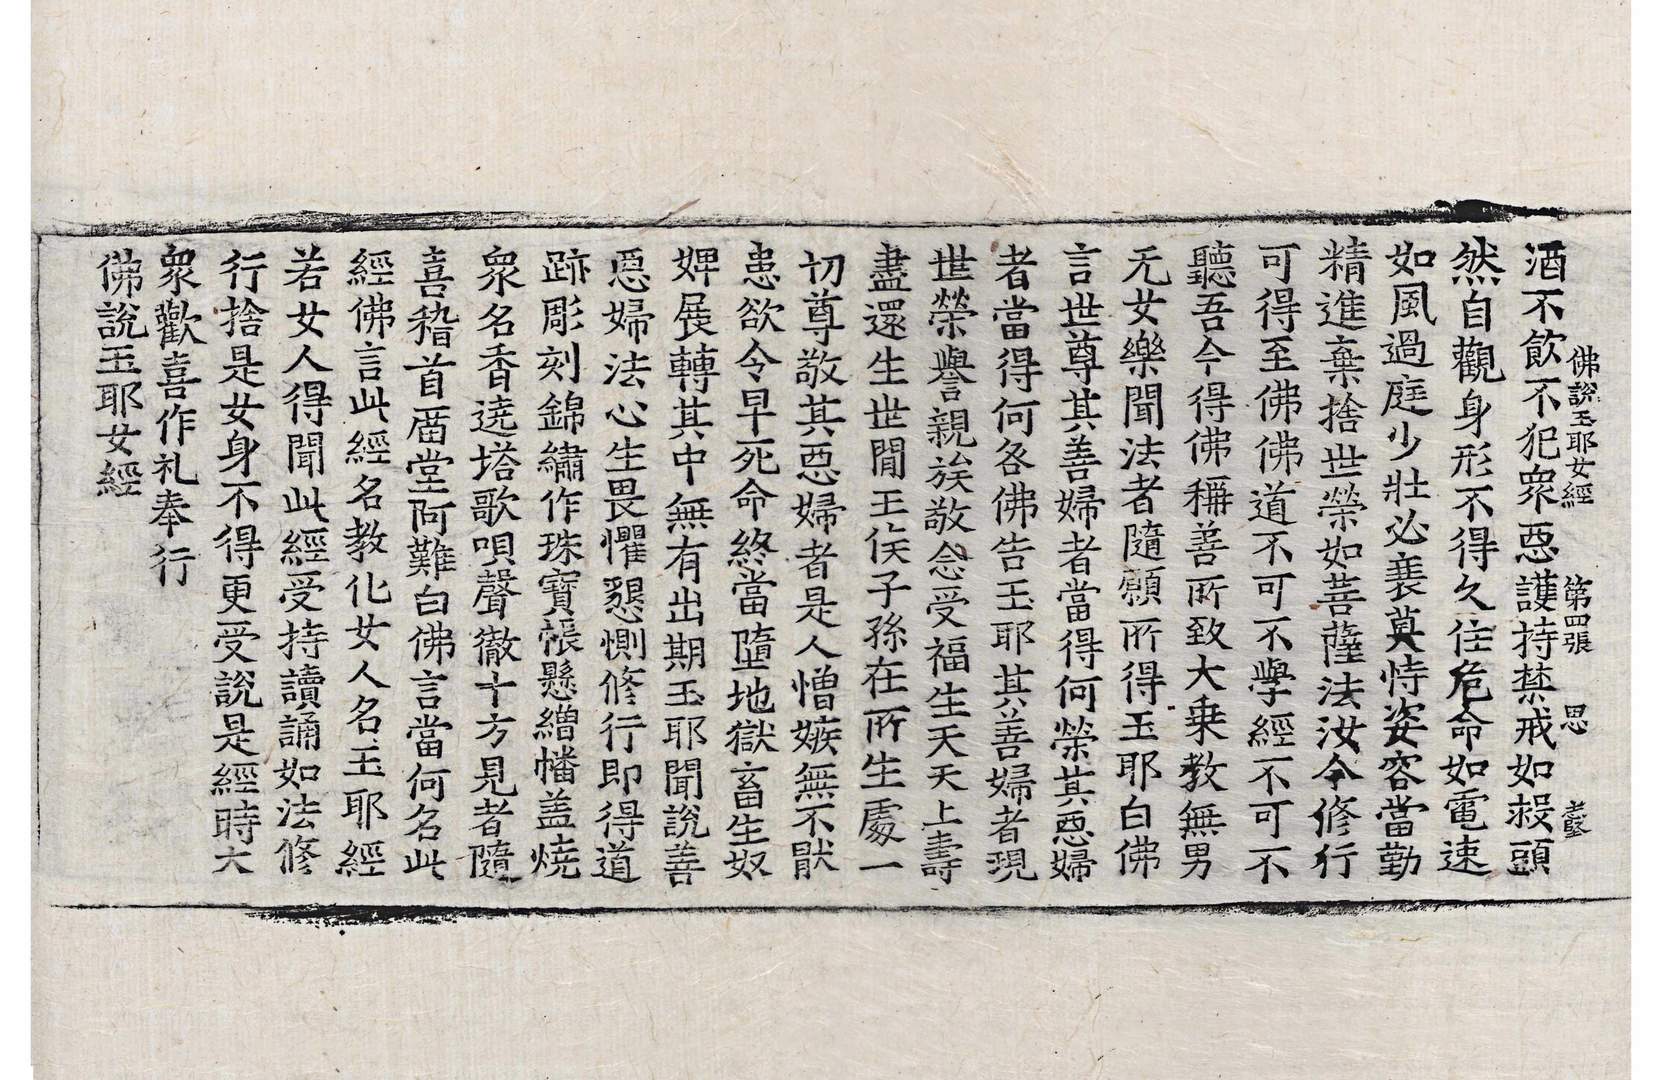 佛說玉耶女經 第四張 思
酒不飲不犯衆惡護持禁戒如救頭
然自觀身形不得久住危命如電速
如風過庭少壯必衰莫恃姿容當勤
精進棄捨世榮如菩薩法汝今修行
可得至佛佛道不可不學經不可不
聽吾今得佛稱善所致大乗教無男
无女樂聞法者隨願所得玉耶白佛
言世尊其善婦者當得何榮其惡婦
者當得何咎佛告玉耶其善婦者現
世榮譽親族敬念受福生天天上壽
盡還生世間王侯子孫在所生處一
切尊敬其惡婦者是人憎嫉無不猒
恚欲令早死命終當墮地獄畜生奴
婢展轉其中無有出期玉耶聞說善
惡婦法心生畏懼懇惻修行即得道
跡彫刻錦繡作珠寶帳懸繒幡盖燒
衆名香遶塔歌唄聲徹十方見者隨
喜稽首畱堂阿難白佛言當何名此
經佛言此經名教化女人名玉耶經
若女人得聞此經受持讀誦如法修
行捨是女身不得更受說是經時大
衆歡喜作礼奉行
佛說玉耶女經